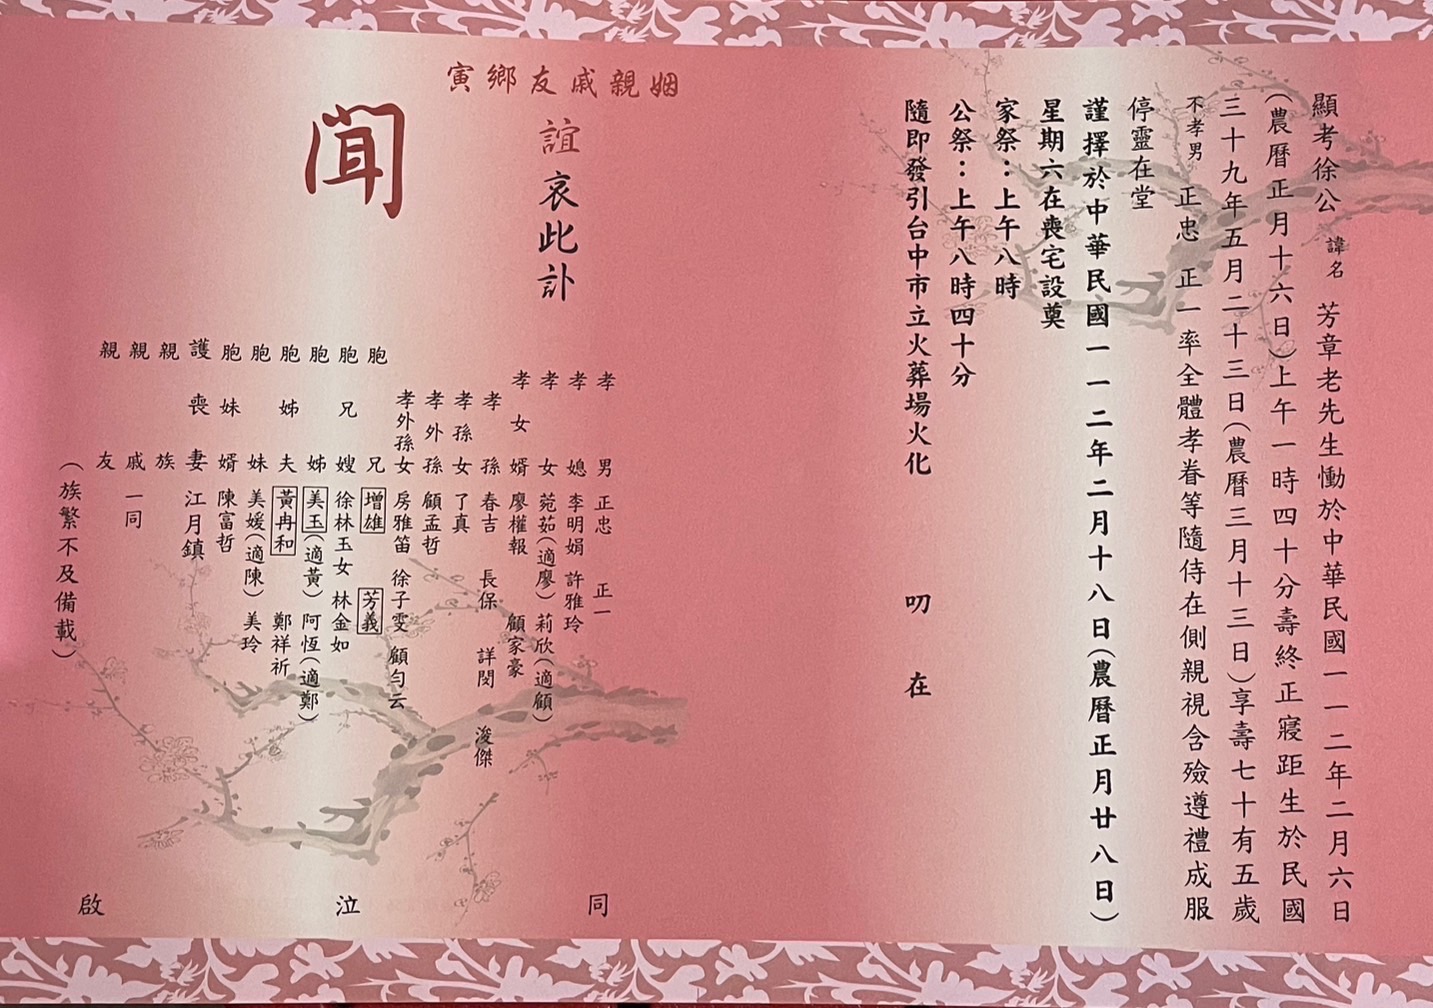 顯考徐公諱名芳章老先生慟於中華民國一一二年二月六日
（農曆正月十六日）上午一時四十分壽終正寢距生於民國
三十九年五月二十三日（農曆三月十三日）享壽七十有五歲
不孝男 正忠 正一率全體孝眷等隨侍在側親視含殮遵禮成服
停靈在堂
謹擇於中華民國一一二年二月十八日（農曆正月廿八日）
星期六在喪宅設奠
家祭：上午八時
公祭：上午八時四十分
隨即發引台中市立火葬場火化 叨在
姻親戚友鄉寅
誼哀此訃
聞
孝男 正忠 正一
孝媳 李明娟 許雅玲
孝女 菀茹（適廖） 莉欣（適顧）
孝女婿 廖權報 顧家豪
孝孫 春吉 長保 詳閔 浚傑
孝孫女 了真
孝外孫 顧孟哲
孝外孫女 房雅笛 徐子雯 顧勻云
胞兄 增雄 芳義
胞兄嫂 徐林玉女 林金如
胞姊 美玉（適黃） 阿恆（適鄭）
胞姊夫 黃冉和 鄭祥祈
胞妹 美媛（適陳） 美玲
胞妹婿 陳富哲
護喪妻 江月鎮
親族
親戚 一同
親友
（族繁不及備載）
同泣啟